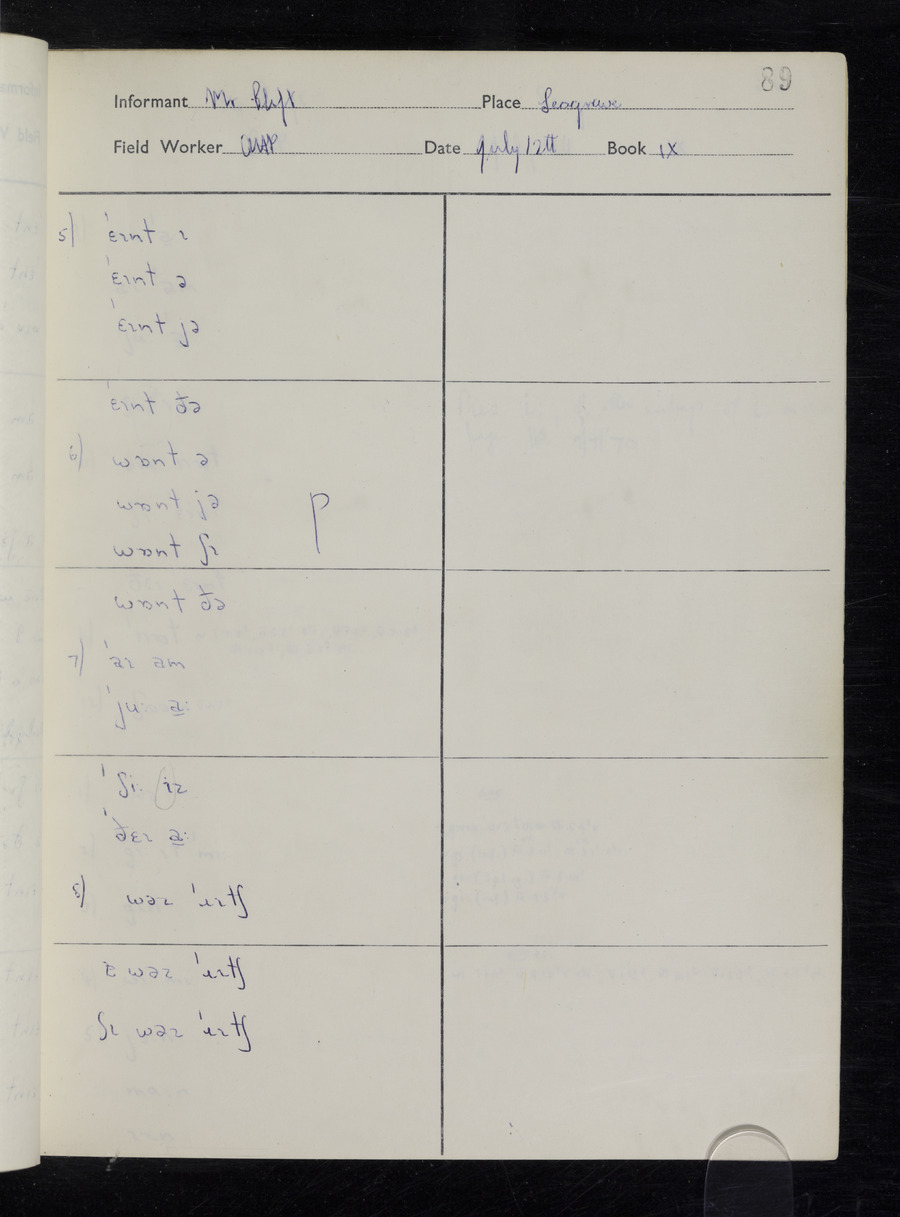 89
Informant Mr Place Seagrave
Field Worker Date July 12th Book IX
5) ˈɛɪnt ɪ
ˈɛɪnt ə
ˈɛɪnt jə
ˈɛɪnt ðə
6) wɒnt ə
wɒnt jə
wɒnt ʃɪ
p
wɒnt ðə
7) ˈaɪ am
ˈju: a:
ˈʃi: ɪz
ˈðɛɪ a:
8) wəz ˈɪtʃ
ɪ wəz ˈɪtʃ
ʃɪ wəz ˈɪtʃ